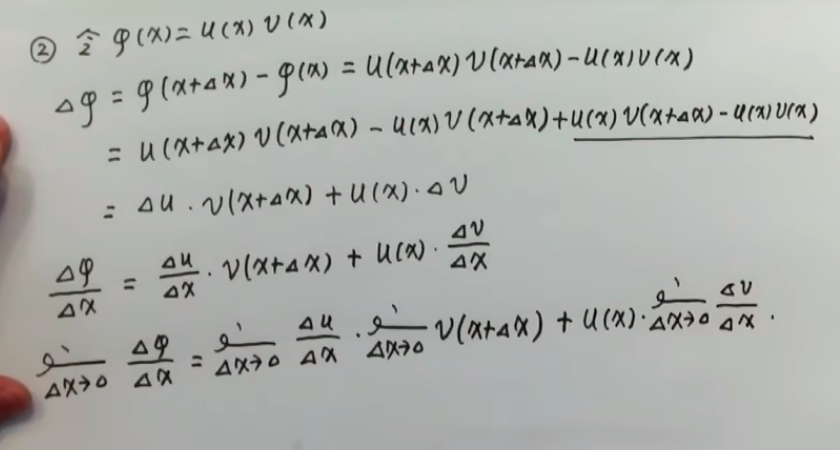 ② 令 φ(x)=u(x)v(x)
Δφ = φ(x+Δx) - φ(x) = u(x+Δx)v(x+Δx) - u(x)v(x)
= u(x+Δx)v(x+Δx) - u(x)v(x+Δx) + u(x)v(x+Δx) - u(x)v(x)
= Δu · v(x+Δx) + u(x) · Δv
Δφ/Δx = Δu/Δx · v(x+Δx) + u(x) · Δv/Δx
lim Δx→0 Δφ/Δx = lim Δx→0 Δu/Δx · lim Δx→0 v(x+Δx) + u(x) · lim Δx→0 Δv/Δx .